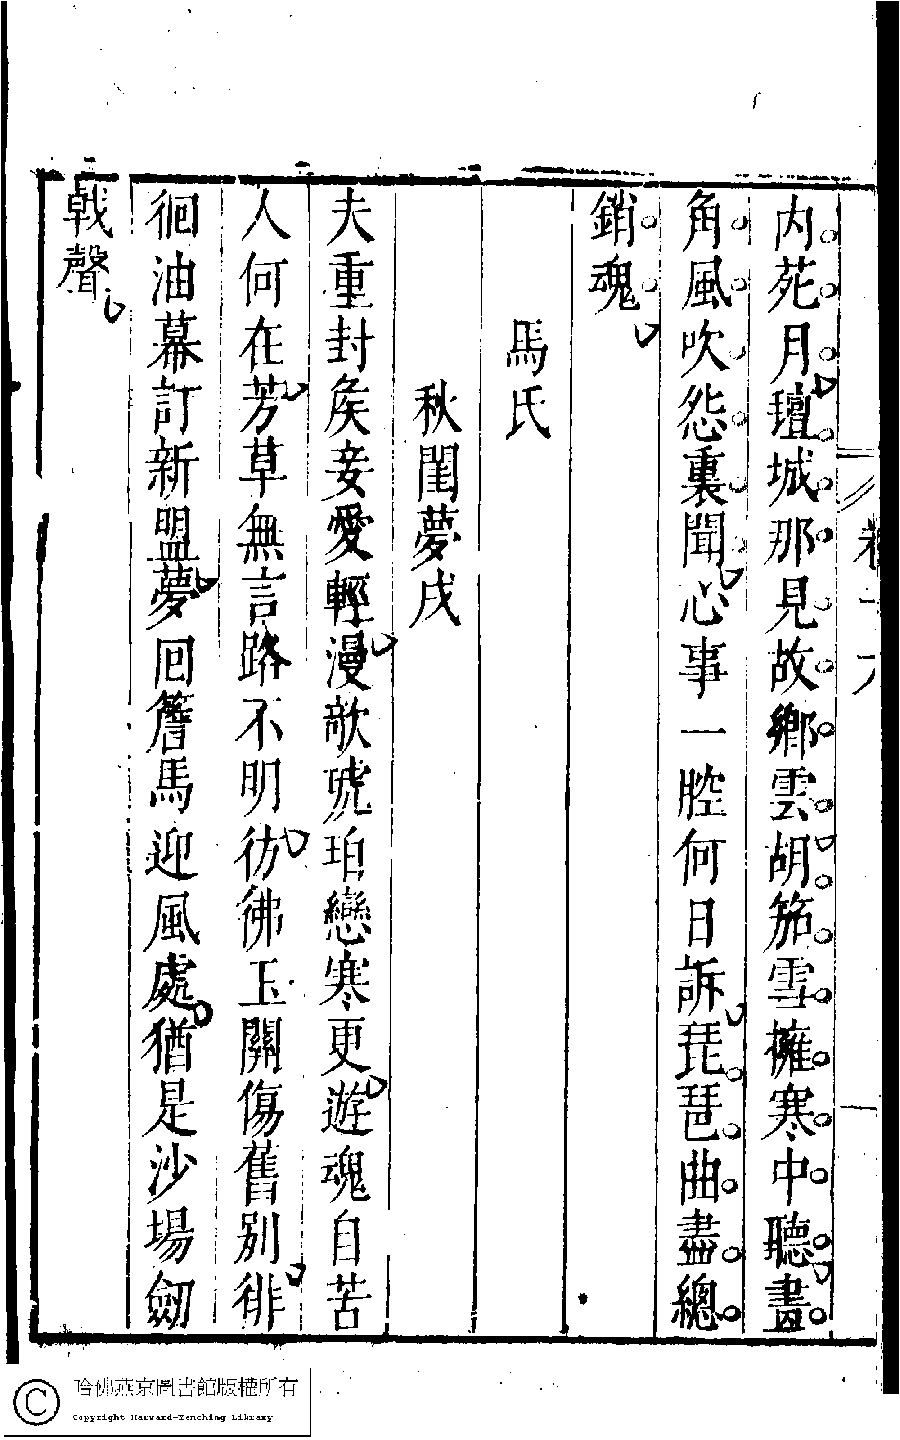 卷十六
内苑月瓊城那見故鄉雲胡笳雪擁寒中聽畫
角風吹怨裏聞心事一腔何日訴琵琶曲盡總
銷魂
馬氏
秋閨夢戍
夫重封侯妾愛輕漫敲琥珀戀寒更遊魂自苦
人何在芳草無言路不明彷彿玉關傷舊別徘
徊油幕訂新盟夢回簷馬迎風處猶是沙場劒
戟聲
哈佛燕京圖書館版權所有
Copyright Harvard-Yenching Library